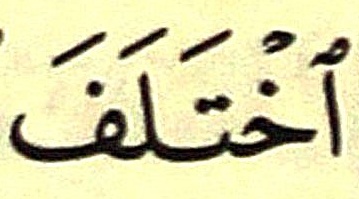 ٱخْتَلَفَ